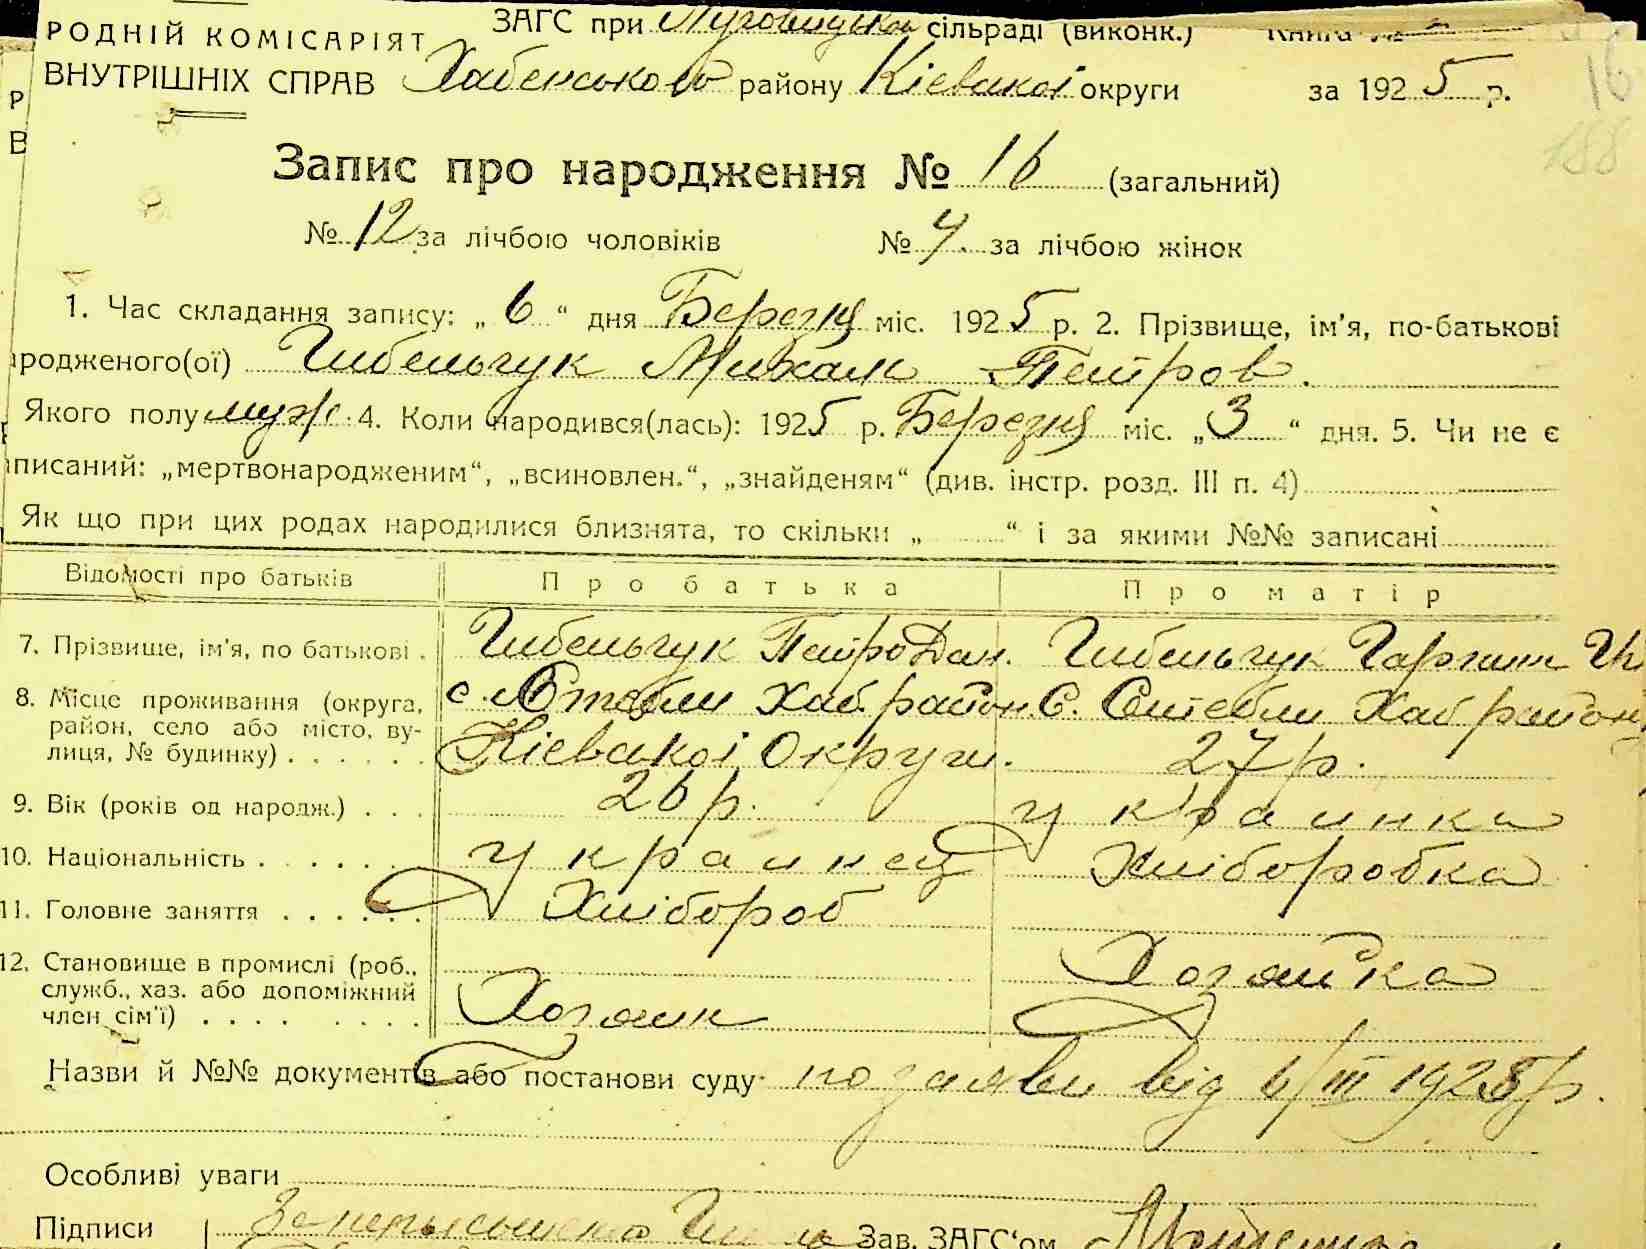 РОДНІЙ КОМІСАРІЯТ ЗАГС при сільраді (виконк.) Книга №
ВНУТРІШНІХ СПРАВ Хабенського району Кіевскої округи за 1925 р.
16
188
Р
В
Запис про народження № 16 (загальний)
№ 12 за лічбою чоловіків № 4. за лічбою жінок
1. Час складання запису: „ 6 “ дня Березня міс. 1925 р. 2. Прізвище, ім'я, по-батькові
родженого(ої) Гибельчук Михаил Петров.
Якого полу муж. 4. Коли народився(лась): 1925 р. Березня міс. „ 3 “ дня. 5. Чи не є
писаний: „мертвонародженим“, „всиновлен.“, „знайденям“ (див. інстр. розд. III п. 4)
Як що при цих родах народилися близнята, то скільки „ “ і за якими №№ записані
Відомості про батьків Про батька Про матір
7. Прізвище, ім'я, по батькові . Гибельчук Петро Дан. Гибельчук
8. Місце проживання (округа, район, село або місто, вулиця, № будинку) . . . . . . с. Стебли Хаб. район. С. Стебли Хаб район
Кіевскої Округи.
9. Вік (років од народж.) . . . 26 р. 27 р.
10. Національність . . . . . . украинец украинка
11. Головне заняття . . . . . . Хлібороб Хліборобка
12. Становище в промислі (роб., служб., хаз. або допоміжний член сім'ї) . . . . . . . . Хозяин Хозяйка
Назви й №№ документів або постанови суду по заяви від 6/III 1925 р.
Особливі уваги
Підписи Зав. ЗАГС'ом